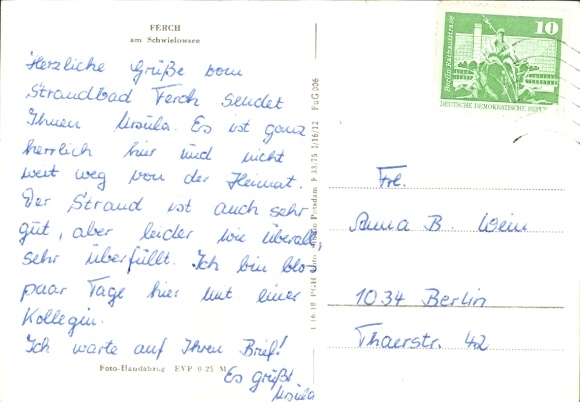 FERCH
am Schwielowsee
Herzliche Grüße vom
Strandbad Ferch sendet
Ihnen Ursula. Es ist ganz
herrlich hier und nicht
weit weg von der Heimat.
Der Strand ist auch sehr
gut, aber leider wie überall,
sehr überfüllt. Ich bin blos
paar Tage hier mit einer
Kollegin.
Ich warte auf Ihren Brief!
Es grüßt
Ursula
Foto-Handabzug EVP 0.25 M
Potsdam P 33/75 1/16/12 FuG 006
10
Berlin-Rathausstraße
DEUTSCHE DEMOKRATISCHE REPUBLIK
Frl.
Anna B. Wein
1034 Berlin
Thaerstr. 42